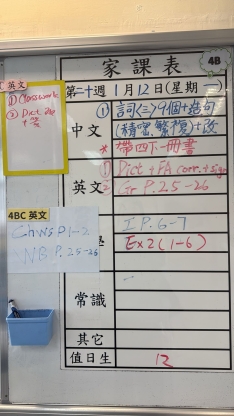 家課表
4B
第二十週 1月12日(星期一)
英文
① Classwork
② Dict
中文
① 詞(三)9個+造句
(精密,繁複)+改
* 帶四下一冊書
英文
① Dict + FA corr. + sign
② Gr P.25-26
4BC 英文
Ch WS P1-2
NB P. 25-26
I P. 6-7
Ex 2 (1-6)
常識
其它
值日生
12